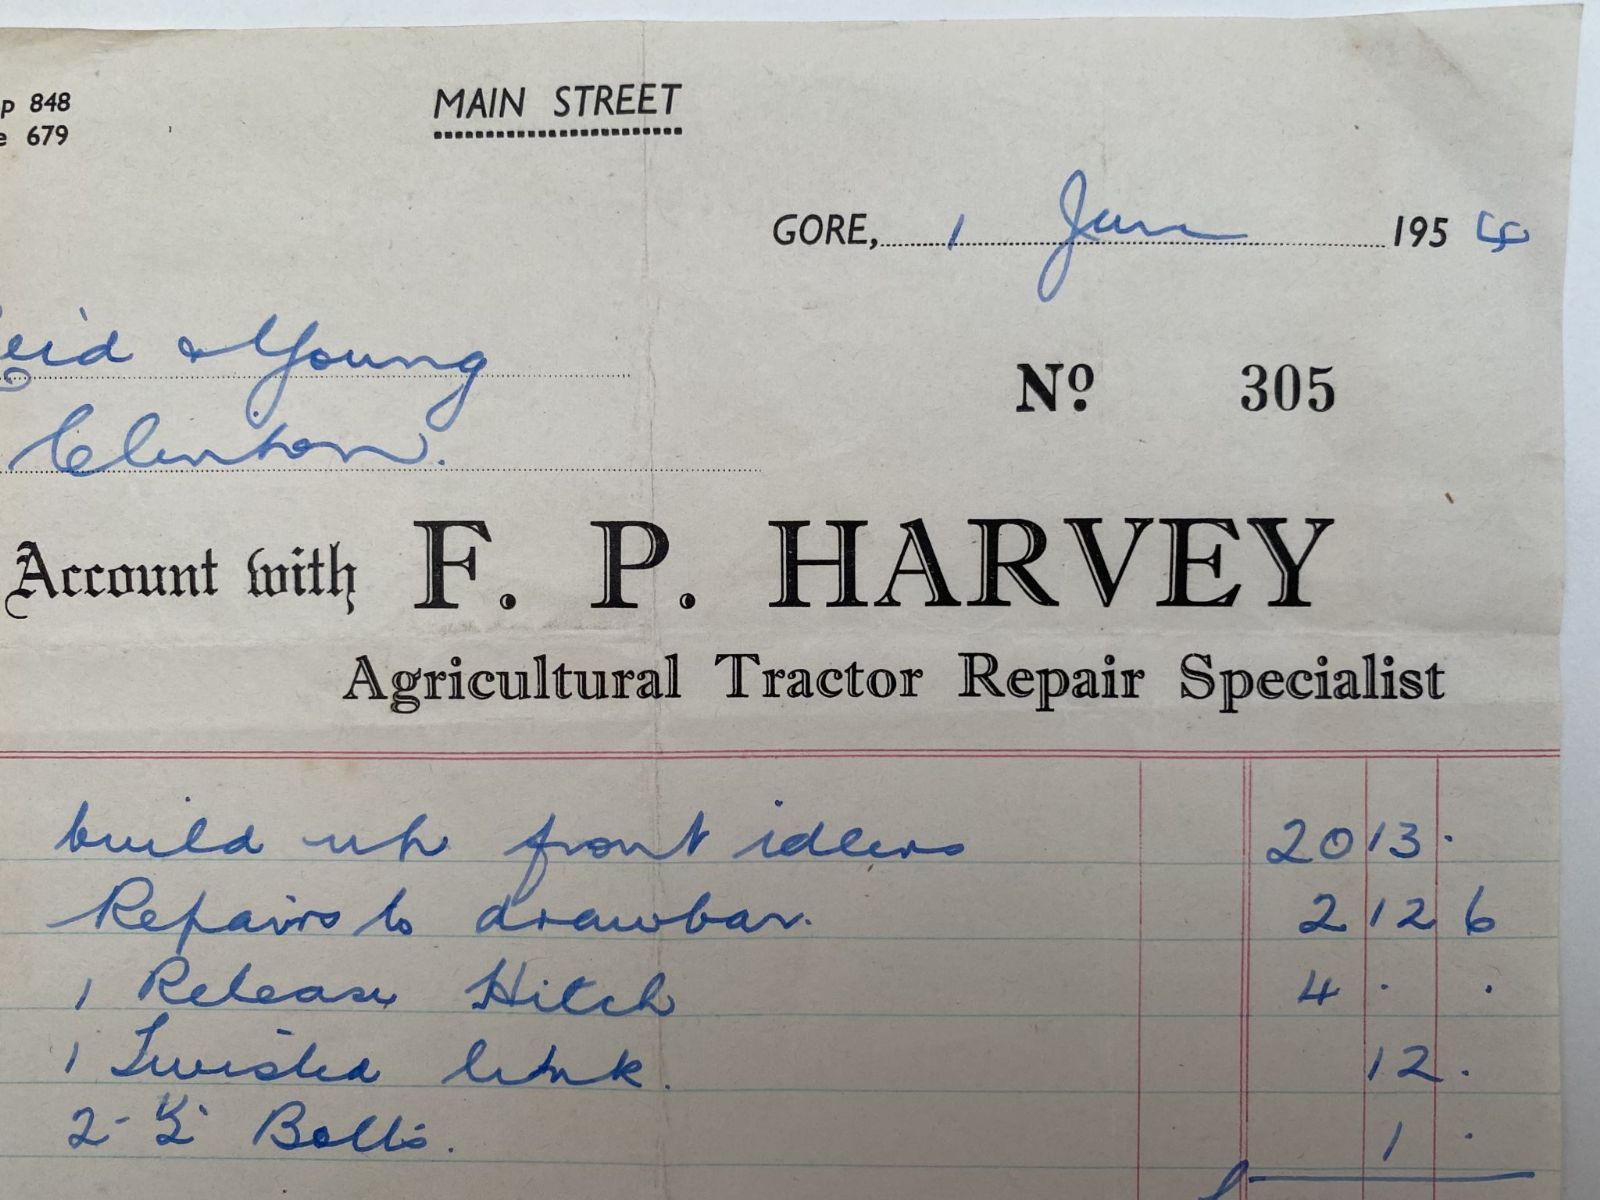 p 848
MAIN STREET
e 679
GORE, 1 Jan 1954
eid & Young
No 305
Clinton.
Account with F. P. HARVEY
Agricultural Tractor Repair Specialist
build up front idlers 20 13 .
Repairs to drawbar. 2 12 6
1 Release Hitch 4 . .
1 Twisted link. 12 .
2 - ½" Bolts. 1 .